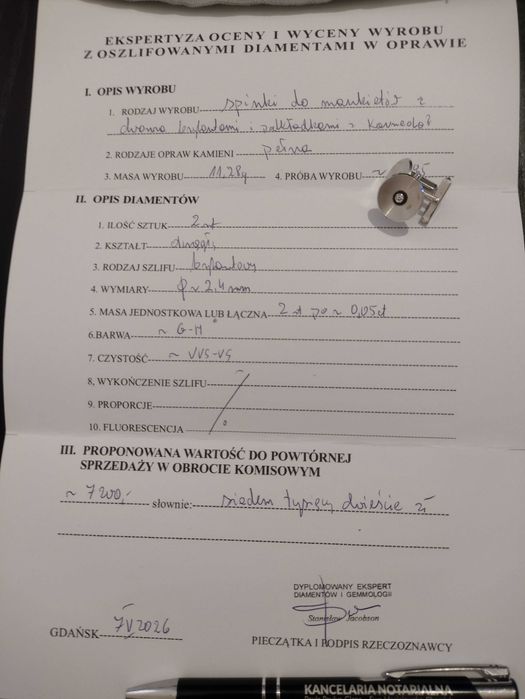 EKSPERTYZA OCENY I WYCENY WYROBU
Z OSZLIFOWANYMI DIAMENTAMI W OPRAWIE
I. OPIS WYROBU
1. RODZAJ WYROBU spinki do mankietów z
dwoma brylantami i zakładkami z
2. RODZAJE OPRAW KAMIENI pełna
3. MASA WYROBU 11,28g 4. PRÓBA WYROBU ~
II. OPIS DIAMENTÓW
1. ILOŚĆ SZTUK 2 szt
2. KSZTAŁT okrągły
3. RODZAJ SZLIFU brylantowy
4. WYMIARY φ ~ 2,4 mm
5. MASA JEDNOSTKOWA LUB ŁĄCZNA 2 szt po ~ 0,05 ct
6.BARWA ~ G-H
7. CZYSTOŚĆ ~ VVS-VS
8, WYKOŃCZENIE SZLIFU
9. PROPORCJE
10. FLUORESCENCJA
III. PROPONOWANA WARTOŚĆ DO POWTÓRNEJ
SPRZEDAŻY W OBROCIE KOMISOWYM
~ 7200,- słownie: siedem tysięcy dwieście zł
DYPLOMOWANY EKSPERT
DIAMENTÓW I GEMMOLOGII
Stanisław Jacobson
GDAŃSK 7 V 2026
PIECZĄTKA I PODPIS RZECZOZNAWCY
KANCELARIA NOTARIALNA